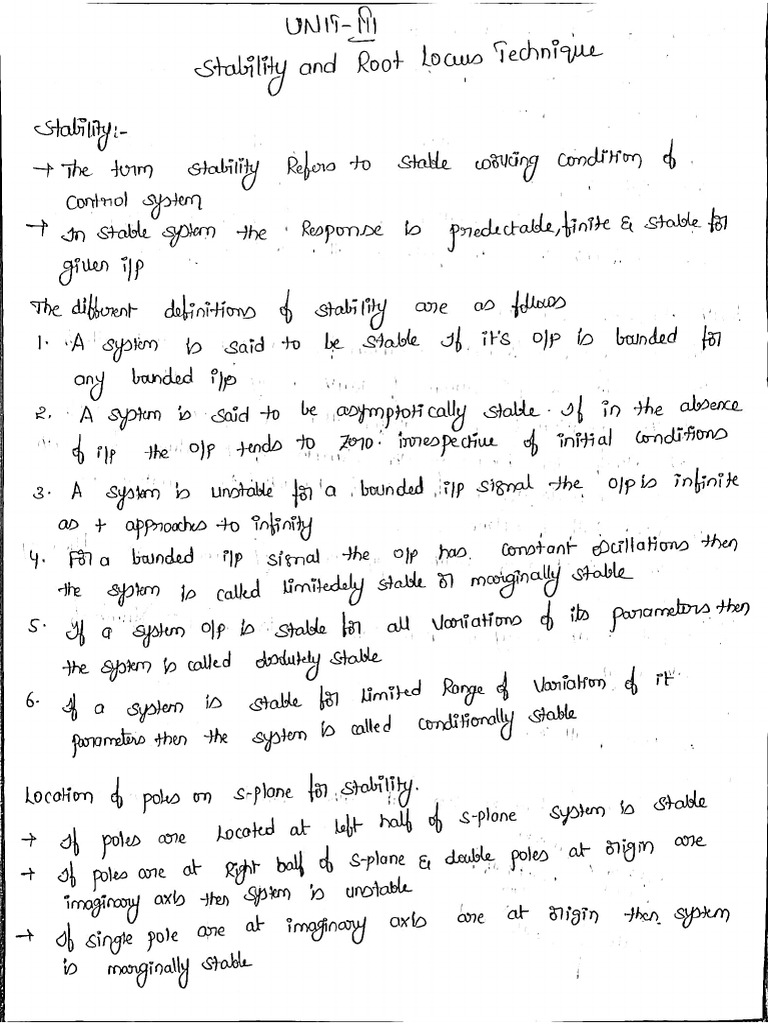 UNIT-III
Stability and Root Locus Technique
Stability:-
→ The term stability Refers to stable working condition of
control system
→ In stable system the Response is predectable, finite & stable for
given i/p
The different definitions of stability are as follows
1. A system is said to be stable If it's o/p is bounded for
any bounded i/p
2. A system is said to be asymptotically stable. If in the absence
of i/p the o/p tends to zero. irrespective of initial conditions
3. A system is unstable for a bounded i/p signal the o/p is infinite
as t approaches to infinity
4. For a bounded i/p signal the o/p has constant oscillations then
the system is called limitedely stable or marginally stable
5. If a system o/p is stable for all variations of its parameters then
the system is called absolutely stable
6. If a system is stable for limited Range of variation of it
parameters then the system is called conditionally stable
Location of poles on s-plane for stability.
→ If poles are Located at left half of s-plane system is stable
→ If poles are at Right half of s-plane & double poles at origin are
imaginary axis then system is unstable
→ If single pole are at imaginary axis are at origin then system
is marginally stable